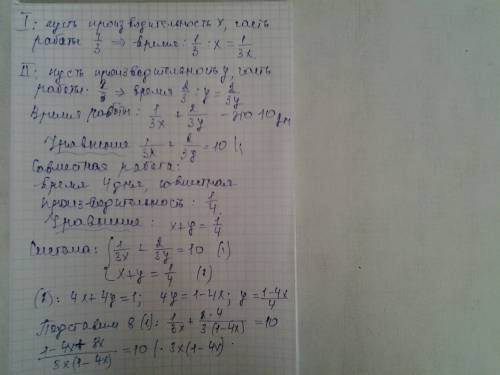 I: пусть производительность x, часть
работы 1/3 ⇒ время: 1/3 : x = 1/3x
II: пусть производительность y, часть
работы: 2/3 ⇒ время 2/3 : y = 2/3y
Время работы: 1/3x + 2/3y - это 10 дн
Уравнение 1/3x + 2/3y = 10
Совместная работа:
время 4 дня, совместная
произ-водительность: 1/4
Уравнение: x+y = 1/4
Система: { 1/3x + 2/3y = 10 (1)
x+y = 1/4 (2)
(2): 4x+4y=1; 4y=1-4x; y = 1-4x/4
Подставим в (1): 1/3x + 2·4/3(1-4x) = 10
1-4x+8x/3x(1-4x) = 10 |· 3x(1-4x)